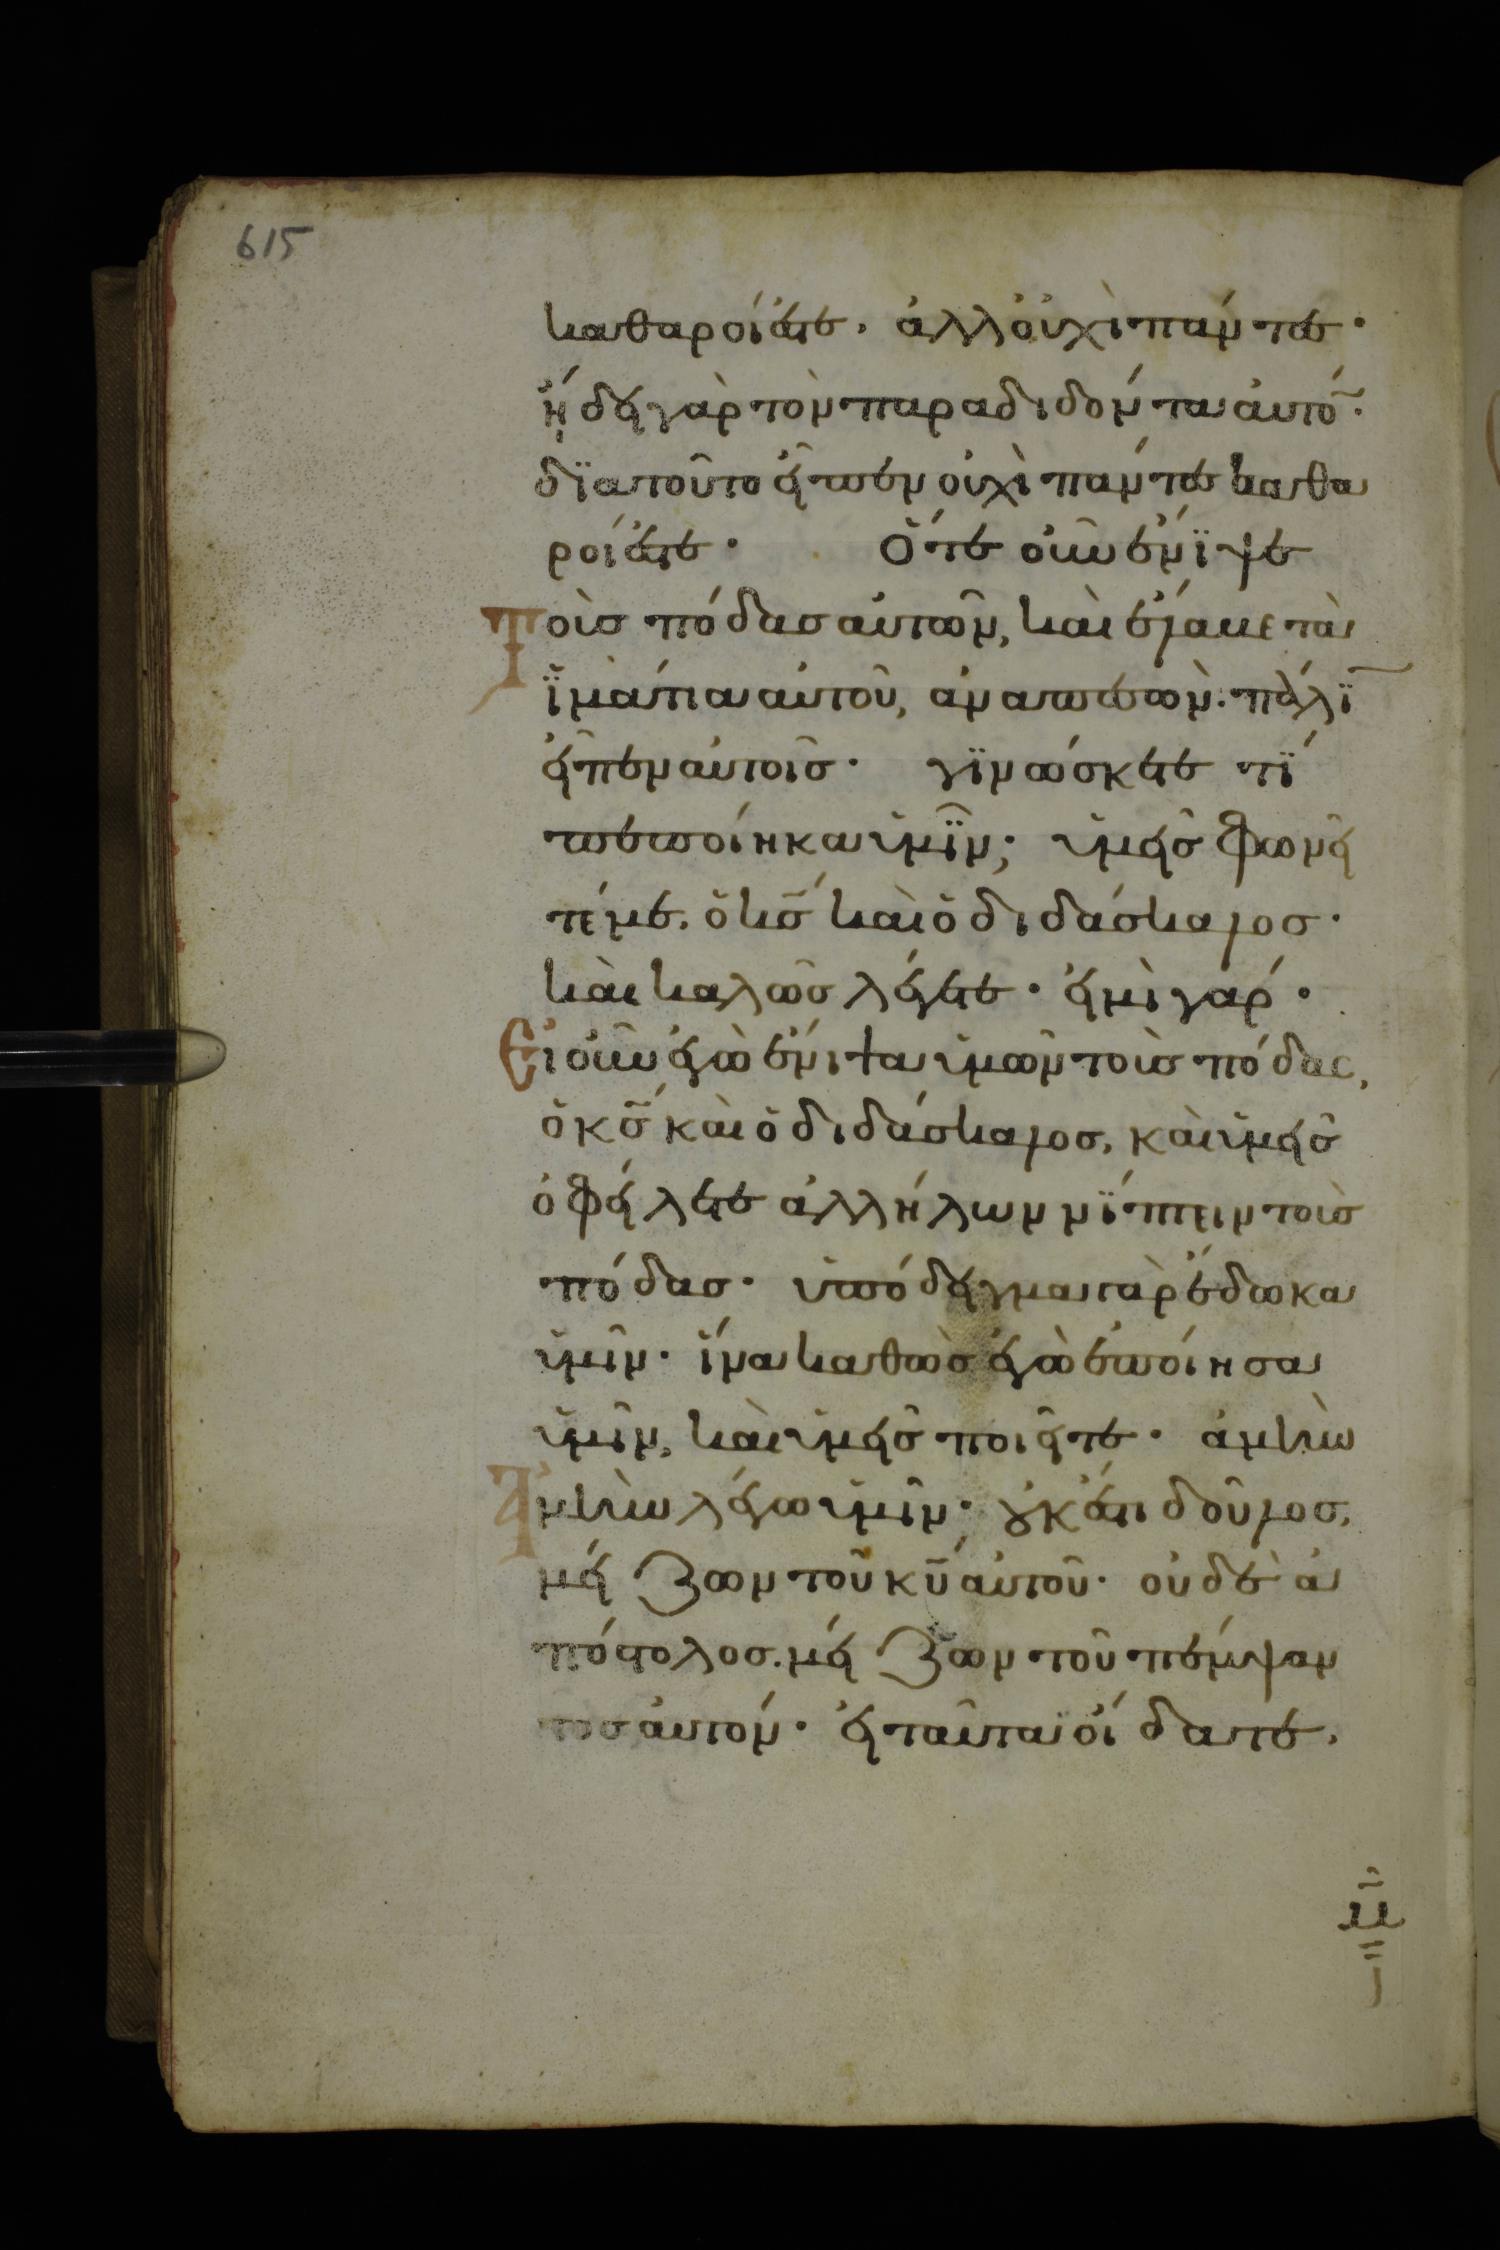 615
καθαροί ἐστε, ἀλλ' οὐχὶ πάντες·
ᾔδει γὰρ τὸν παραδιδόντα αὐτό̅·
δϊατοῦτο εἶπεν οὐχὶ πάντες καθα
ροί ἐστε· Ὅτε οὖν ἔνϊψε
Τοὺς πόδας αὐτῶν, καὶ ἔλαβε τὰ
ἵμάτια αὐτοῦ, ἀναπεσὼν· πάλϊ̅
εἶπεν αὐτοῖς· γϊνώσκετε τί
πεποίηκα ὑμῖν; ὑμεῖς φωνεῖ
τέ με, ὁ κ̅ς̅ καὶ ὁ διδάσκαλος·
καὶ καλῶς λέγετε· εἰμὶ γάρ·
Εἰ οὖν ἐγὼ ἔνιψα ὑμῶν τοὺς πόδας,
ὁ κ̅ς̅ καὶ ὁ διδάσκαλος, καὶ ὑμεῖς
ὀφείλετε ἀλλήλων νίπτειν τοὺς
πόδας· ὑπόδειγμα γὰρ ἔδωκα
ὑμῖν· ἵνα καθὼς ἐγὼ ἐποίησα
ὑμῖν, καὶ ὑμεῖς ποιεῖτε· ἀμὴν
Ἀμὴν λέγω ὑμῖν· οὐκ ἔστι δοῦλος,
μείζων τοῦ κ̅υ̅ αὐτοῦ· οὐδὲ ἀ
πόστολος, μείζων τοῦ πέμψαν
τος αὐτόν· εἰ ταῦτα οἴδατε,